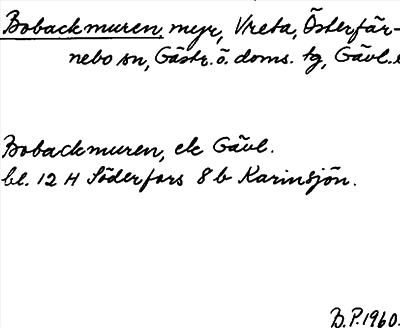 Bobackmuren, myr, Vreta, Österfär-
nebo sn, Gästr. ö. doms. tg, Gävl.
Bobackmuren, ek Gävl.
bl. 12 H Söderfors 8 b Karinsjön.
B.P. 1960.